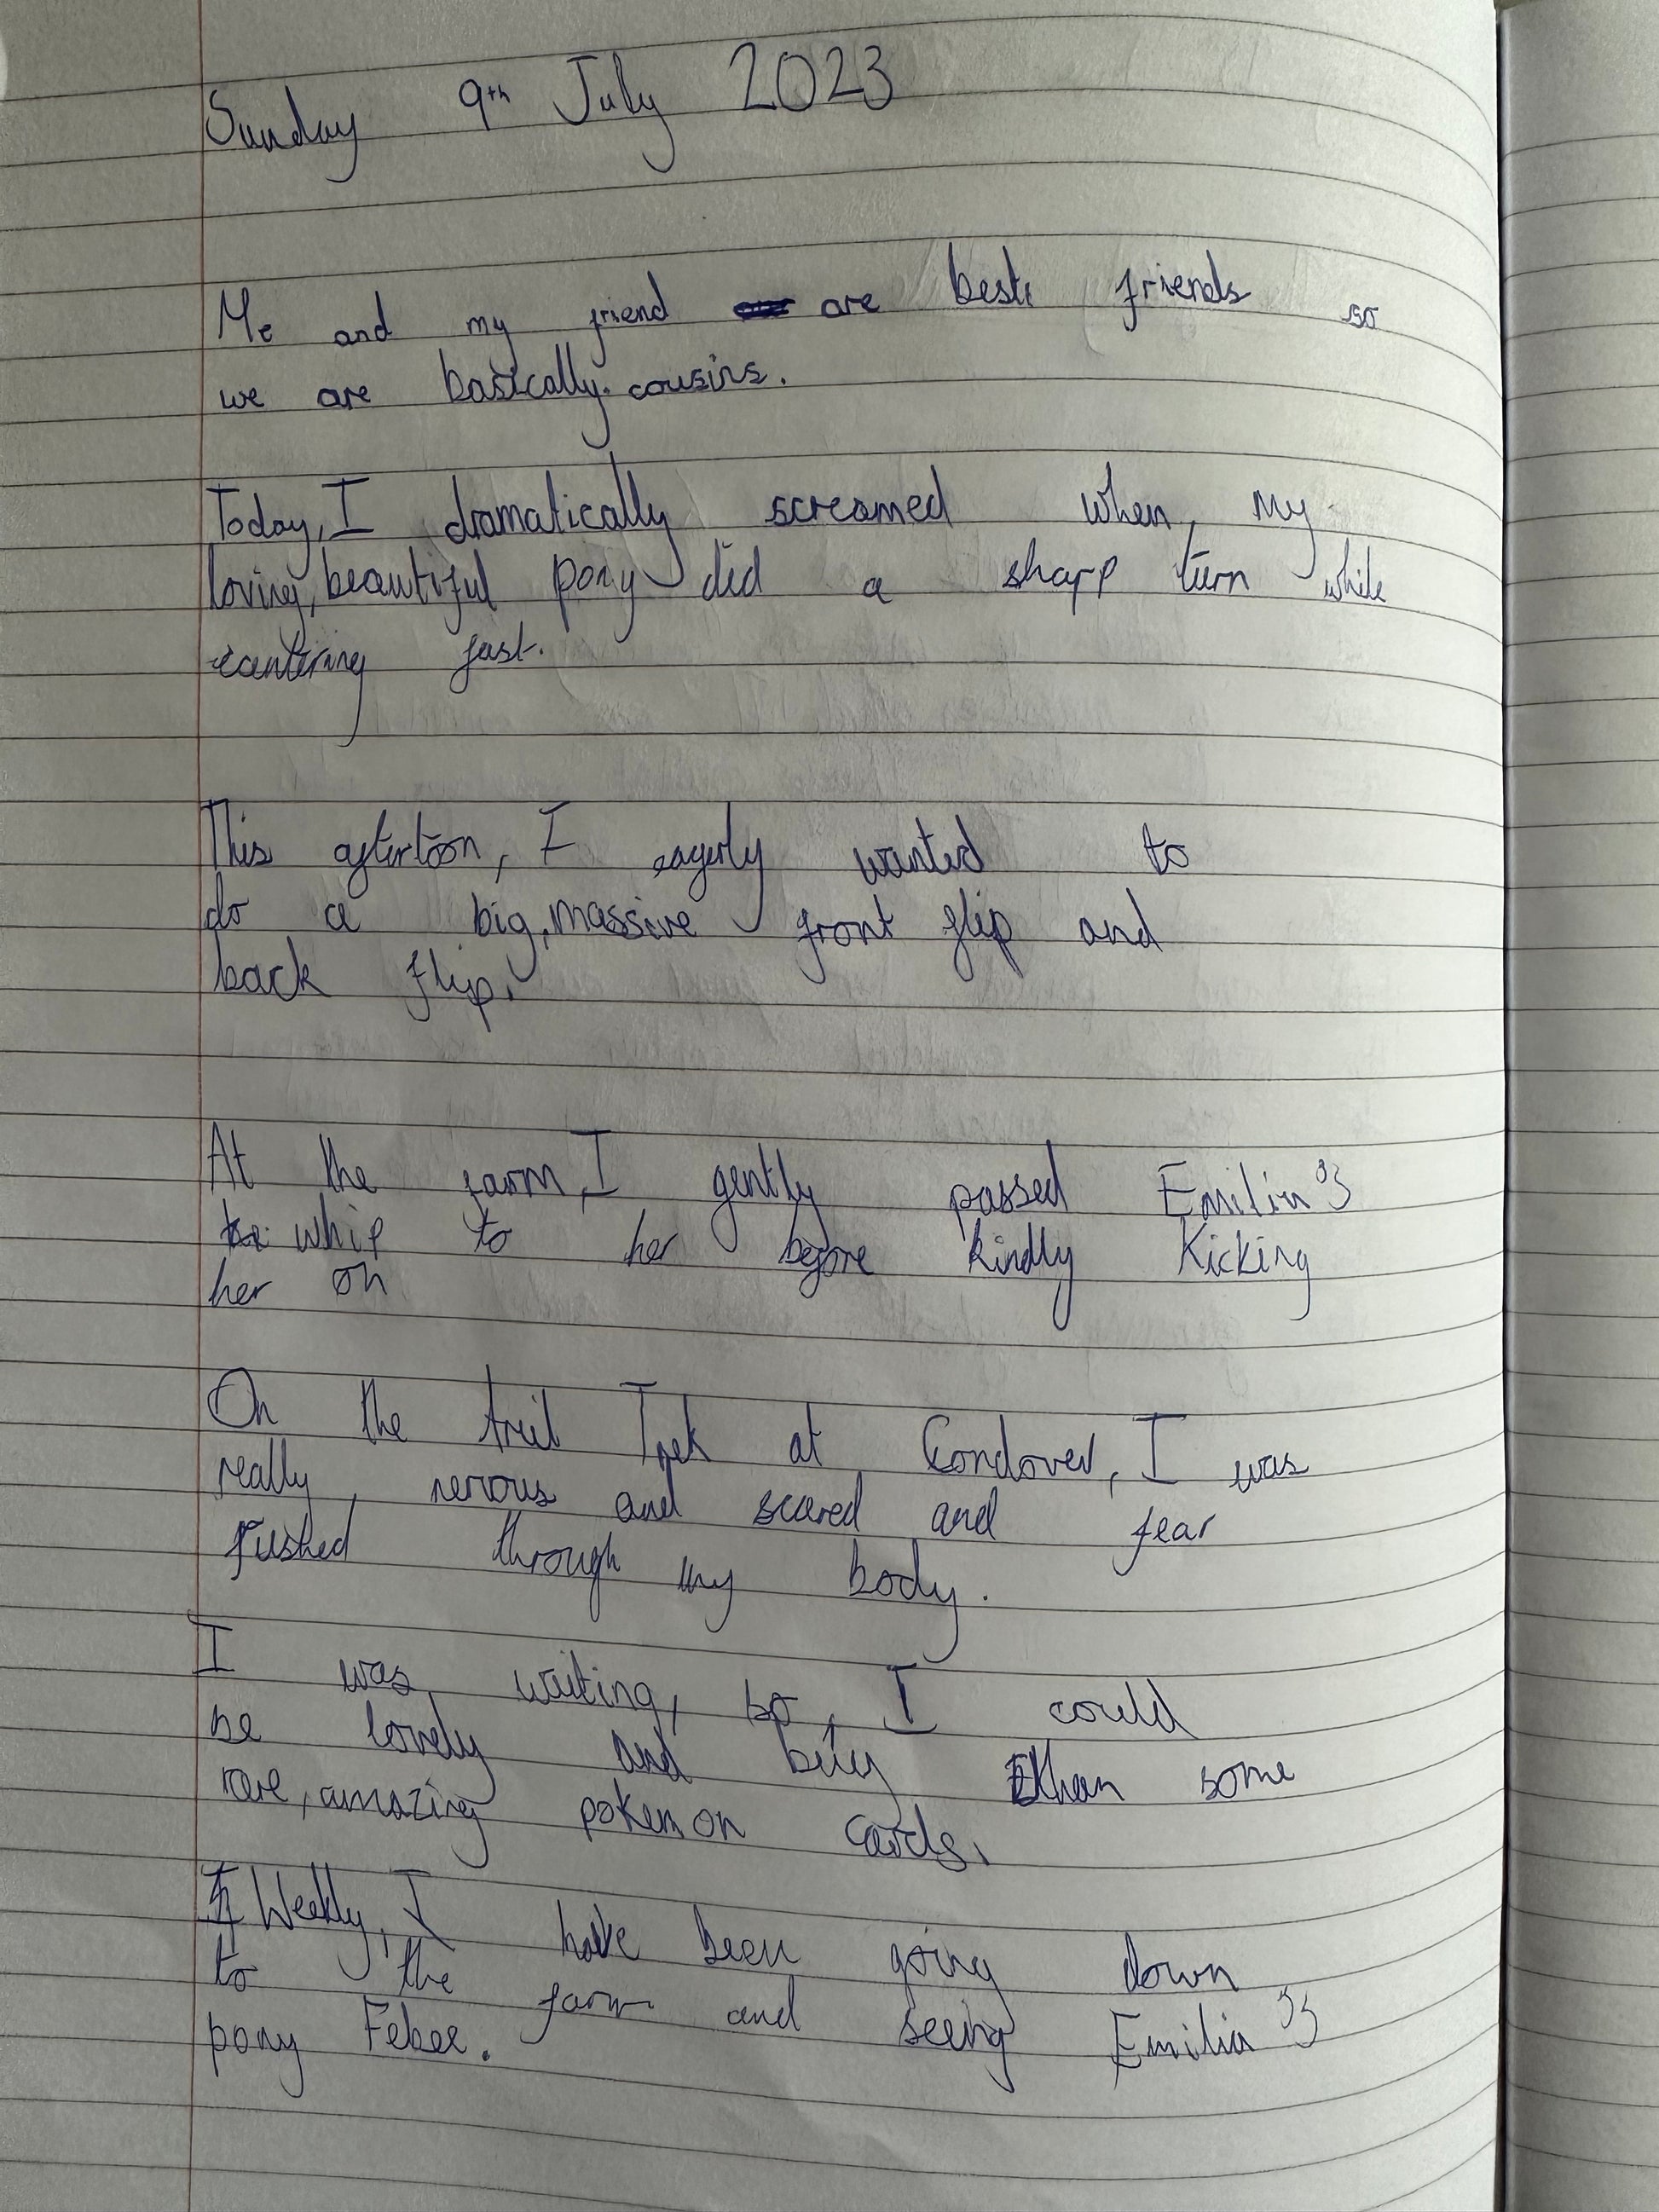 Sunday 9th July 2023
Me and my friend are best friends so
we are basically cousins.
Today, I dramatically screamed when, my
loving, beautiful pony did a sharp turn while
cantering fast.
This aftertoon, I eagerly wanted to
do a big, massive front flip and
back flip.
At the farm, I gently passed Emilia's
whip to her before kindly kicking
her on
On the trail Trek at Condover, I was
really, nervous and scared and fear
rushed through my body.
I was waiting, so, I could
be lovely and buy Ethan some
rare, amazing pokemon cards.
Weekly, I have been going down
to the farm and seeing Emilia's
pony Febee.